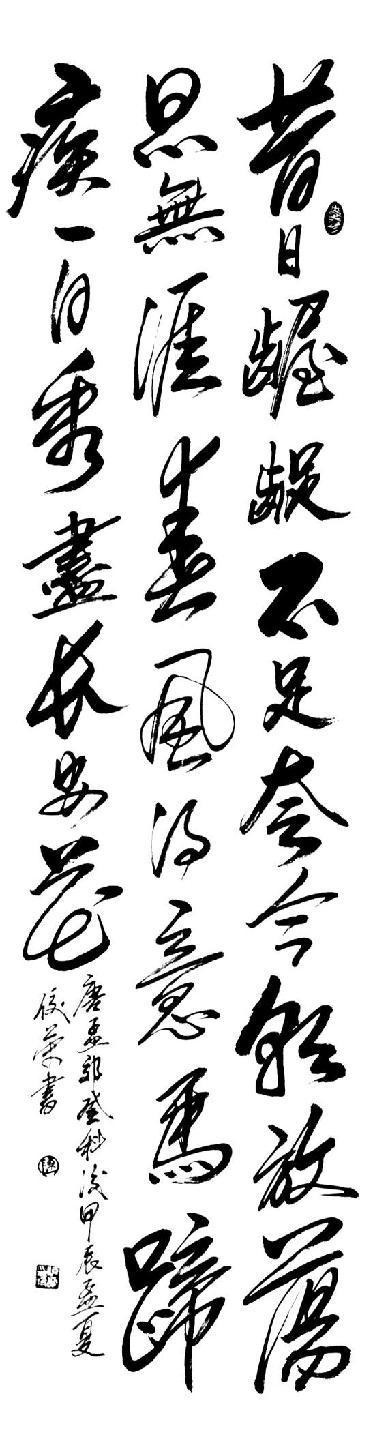 昔日齷齪不足夸今朝放蕩
思無涯春風得意馬蹄
疾一日看盡長安花
唐孟郊登科後甲辰孟夏
書